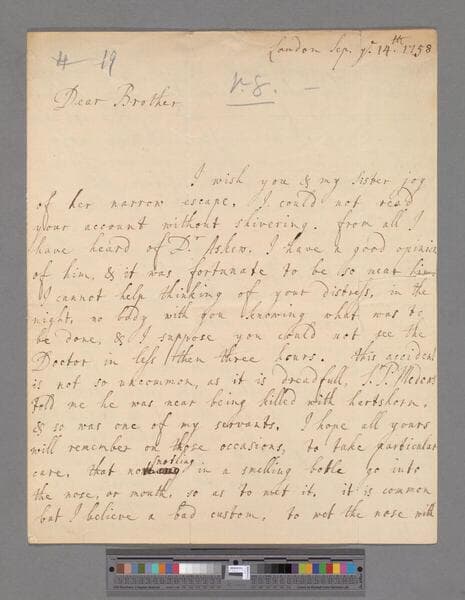 London Sep. yᵉ 14.ᵗʰ 1758
4 19
v.g.
Dear Brother
I wish you & my sister joy
of her narrow escape. I could not read
your account without shivering. from all I
have heard of Dʳ Askew. I have a good opinion
of him, & it was fortunate to be so near
I cannot help thinking of your distress, in the
night, no body with you knowing what was to
be done, & I suppose you could not see the
Doctor in less then three hours. this accident
is not so uncommon, as it is dreadfull,
told me he was near being killed with hertshorn.
& so was one of my servants. I hope all yours
will remember on those occasions, to take particular
care, that nothing in a smelling botle go into
the nose, or mouth, so as to wet it. it is common
but I believe a bad custom, to wet the nose with